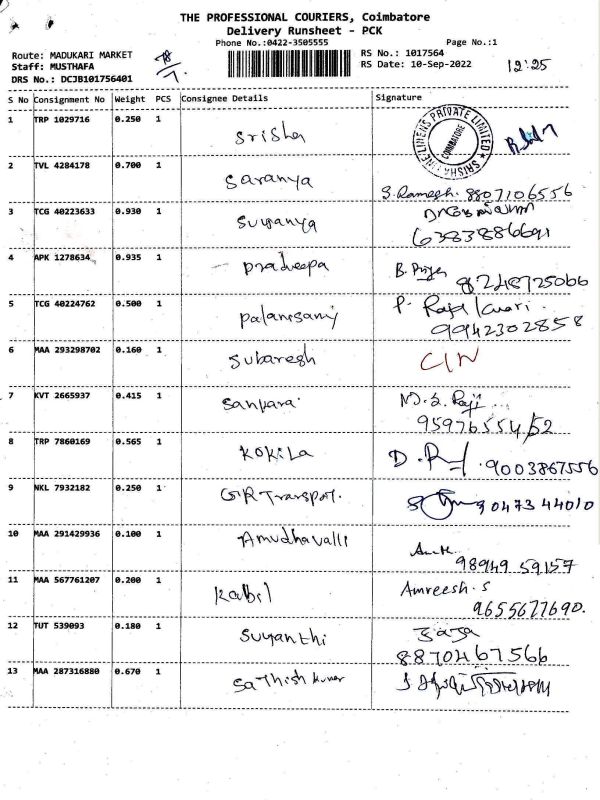 THE PROFESSIONAL COURIERS, Coimbatore
Delivery Runsheet - PCK
Phone No.:0422-3505555 Page No.:1
Route: MADUKARI MARKET RS No.: 1017564
Staff: MUSTHAFA RS Date: 10-Sep-2022 12:25
DRS No.: DCJB101756401
S No Consignment No Weight PCS Consignee Details Signature
1 TRP 1029716 0.250 1 Srisha
PRIVATE LIMITED COIMBATORE
2 TVL 4284178 0.700 1 Saranya
S. Ramesh. 8807106556
3 TCG 40223633 0.930 1 Suyanya
4 APK 1278634 0.935 1 Pradeepa B. Priya
8248725066
5 TCG 40224762 0.500 1 Palanisamy P. Raja
9942302858
6 MAA 293298702 0.160 1 Subaresh CIN
7 KVT 2665937 0.415 1 Sankara M.S. Raji
8 TRP 7860169 0.565 1 Kokila D. 9003867556
9 NKL 7932182 0.250 1 GR Transport. 90473 44010
10 MAA 291429936 0.100 1 Amudhavalli
98949 59157
11 MAA 567761207 0.200 1 Kabil Amreesh. S
9655677690.
12 TUT 539093 0.180 1 Suyanthi
8870467566
13 MAA 287316880 0.670 1 Sathish Kumar